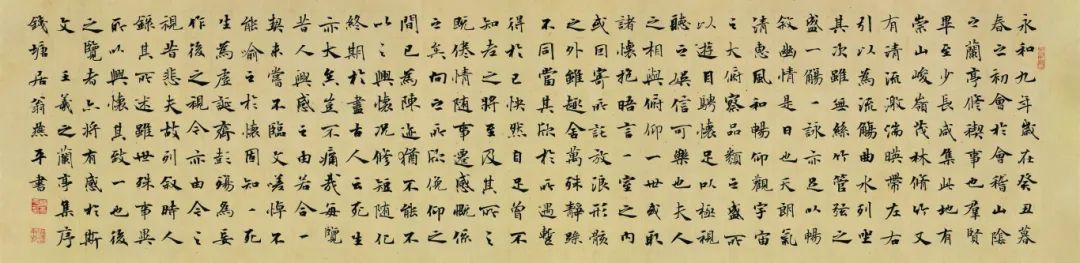 永和九年歲在癸丑暮
春之初會於會稽山陰
之蘭亭修禊事也群賢
畢至少長咸集此地有
崇山峻嶺茂林脩竹又
有清流激湍暎帶左右
引以為流觴曲水列坐
其次雖無絲竹管弦之
盛一觴一詠亦足以暢
敘幽情是日也天朗氣
清惠風和暢仰觀宇宙
之大俯察品類之盛所
以遊目騁懷足以極視
聽之娛信可樂也夫人
之相與俯仰一世或取
諸懷抱晤言一室之內
或因寄所託放浪形骸
之外雖趣舍萬殊靜躁
不同當其欣於所遇暫
得於己快然自足曾不
知老之將至及其所之
既倦情隨事遷感慨係
之矣向之所欣俛仰之
間已為陳迹猶不能不
以之興懷況修短隨化
終期於盡古人云死生
亦大矣豈不痛哉每覽
昔人興感之由若合一
契未嘗不臨文嗟悼不
能喻之於懷固知一死
生為虛誕齊彭殤為妄
作後之視今亦由今之
視昔悲夫故列敘時人
錄其所述雖世殊事異
所以興懷其致一也後
之覽者亦將有感於斯
文 王羲之蘭亭集序
錢塘居翁燕平書